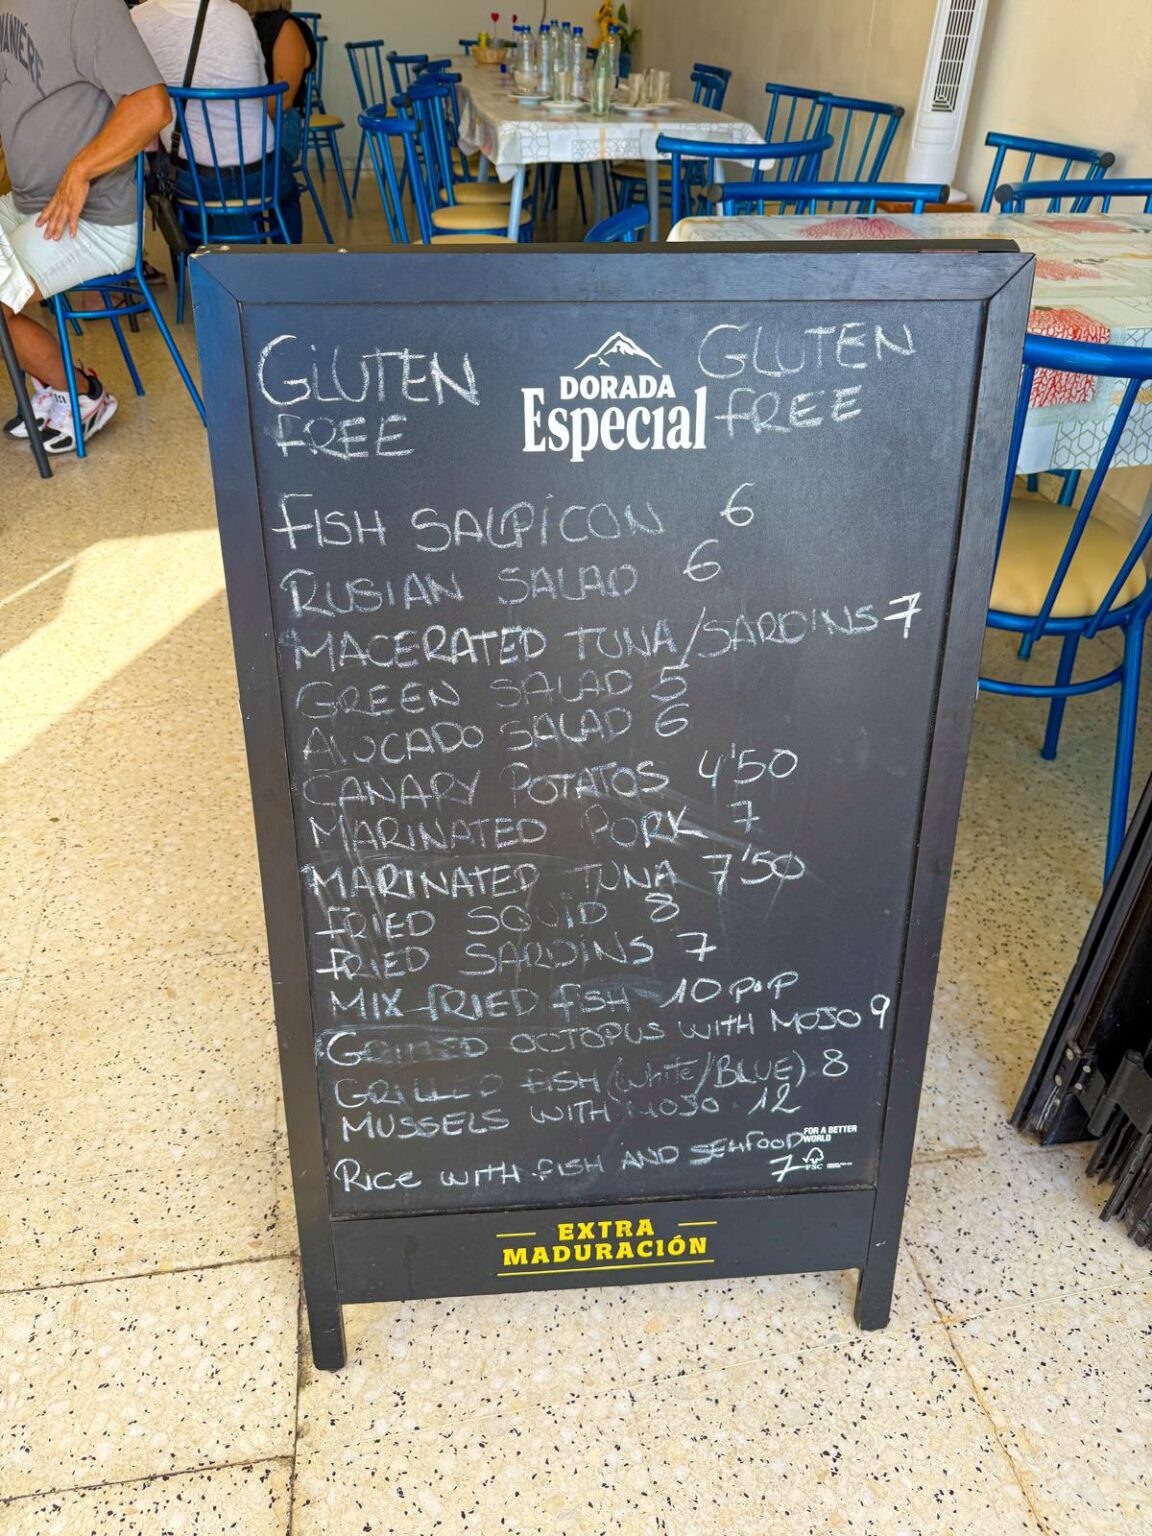 GLUTEN FREE
DORADA
Especial
GLUTEN FREE
FISH SALPICON 6
RUSIAN SALAD 6
MACERATED TUNA/SARDINS 7
GREEN SALAD 5
AVOCADO SALAD 6
CANARY POTATOS 4'50
MARINATED PORK 7
MARINATED TUNA 7'50
FRIED SQUID 8
FRIED SARDINS 7
MIX FRIED FISH 10 P.P
GRILLED OCTOPUS WITH MOJO 9
GRILLED FISH (White/BLUE) 8
MUSSELS WITH MOJO 12
RICE WITH FISH AND SEAFOOD 7
FOR A BETTER WORLD
FSC
EXTRA
MADURACIÓN